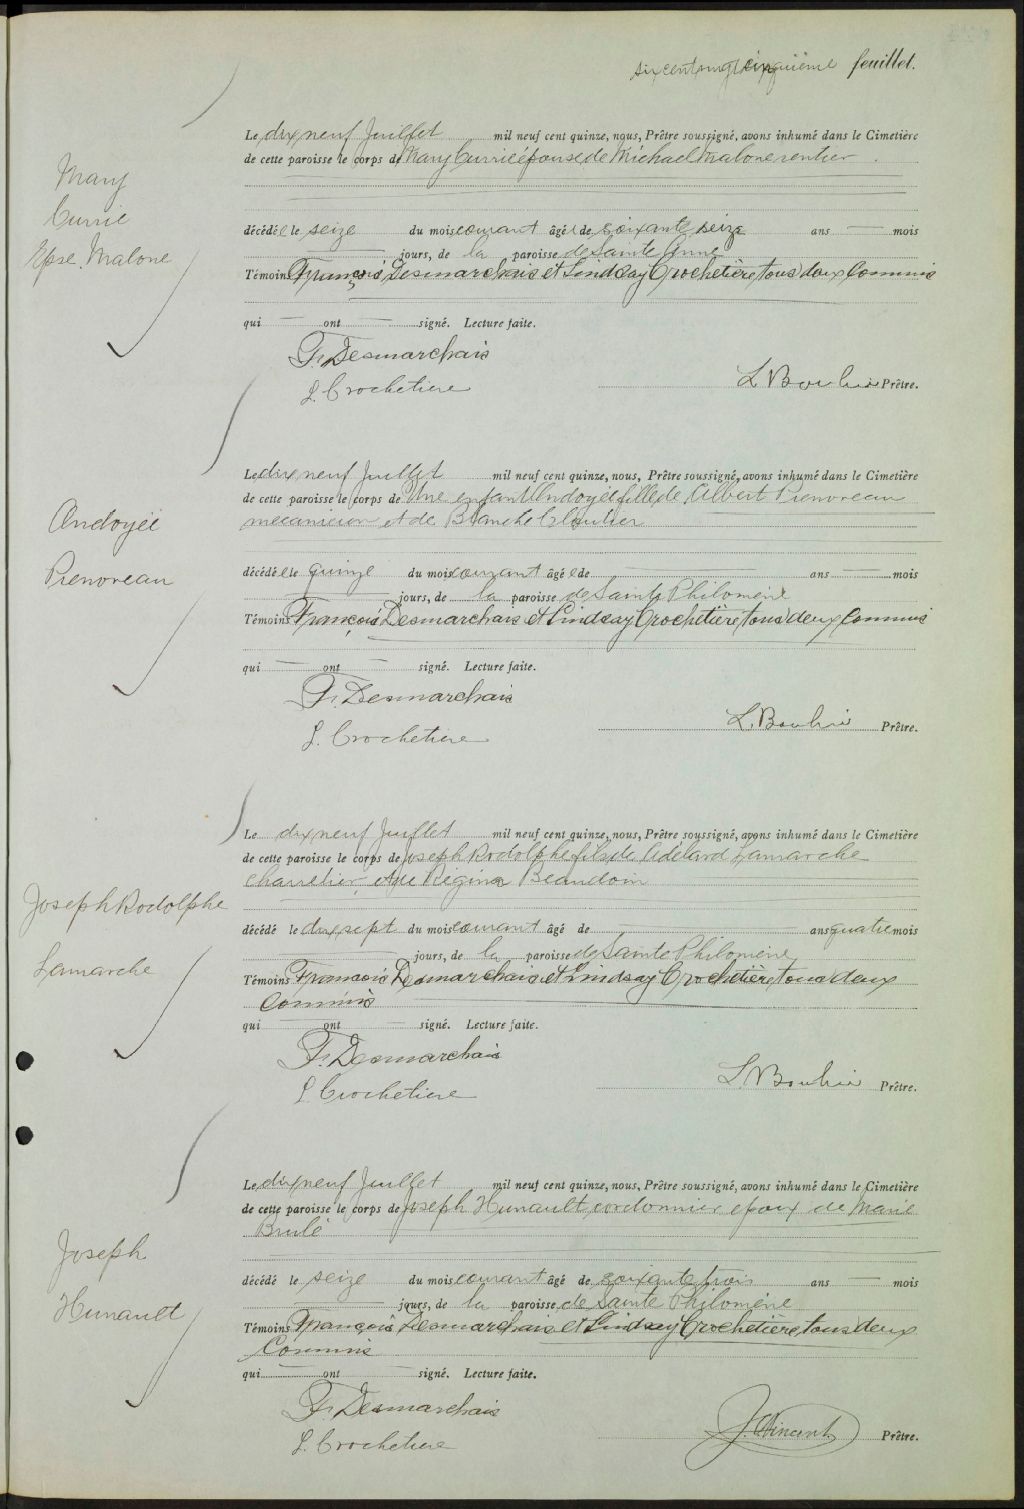 six cent vingt cinquième feuillet.
Mary
Currie
Epse. Malone
Le dix neuf Juillet mil neuf cent quinze, nous, Prêtre soussigné, avons inhumé dans le Cimetière
de cette paroisse le corps de Mary Currie épouse de Michael Malone rentier.
décédée le seize du mois courant âgée de soixante seize ans — mois
— jours, de la paroisse de Sainte Anne
Témoins François Desmarchais et Lindsay Crochetière, tous deux Commis
qui — ont — signé. Lecture faite.
Fr. Desmarchais
L. Crochetiere
L. Prêtre.
Ondoyée
Le dix neuf Juillet mil neuf cent quinze, nous, Prêtre soussigné, avons inhumé dans le Cimetière
de cette paroisse le corps de Une enfant Ondoyée fille de Albert
mecanicien et de Blanche Cloutier
décédée le quinze du mois courant âgée de — ans — mois
— jours, de la paroisse de Sainte Philomène
Témoins François Desmarchais et Lindsay Crochetière, tous deux Commis
qui — ont — signé. Lecture faite.
Fr. Desmarchais
L. Crochetiere
L. Prêtre.
Joseph Rodolphe
Lamarche
Le dix neuf Juillet mil neuf cent quinze, nous, Prêtre soussigné, avons inhumé dans le Cimetière
de cette paroisse le corps de Joseph Rodolphe fils de Adélard Lamarche
charretier et de Regina Beaudoin
décédé le dix sept du mois courant âgé de — ans quatre mois
— jours, de la paroisse de Sainte Philomène
Témoins François Desmarchais et Lindsay Crochetière, tous deux
Commis
qui — ont — signé. Lecture faite.
Fr. Desmarchais
L. Crochetiere
L. Prêtre.
Joseph
Hunault
Le dix neuf Juillet mil neuf cent quinze, nous, Prêtre soussigné, avons inhumé dans le Cimetière
de cette paroisse le corps de Joseph Hunault, cordonnier epoux de Marie
Brulé
décédé le seize du mois courant âgé de soixante trois ans — mois
— jours, de la paroisse de Sainte Philomène
Témoins François Desmarchais et Lindsay Crochetière, tous deux
Commis
qui ont signé. Lecture faite.
Fr. Desmarchais
L. Crochetiere
J. Vincent Prêtre.